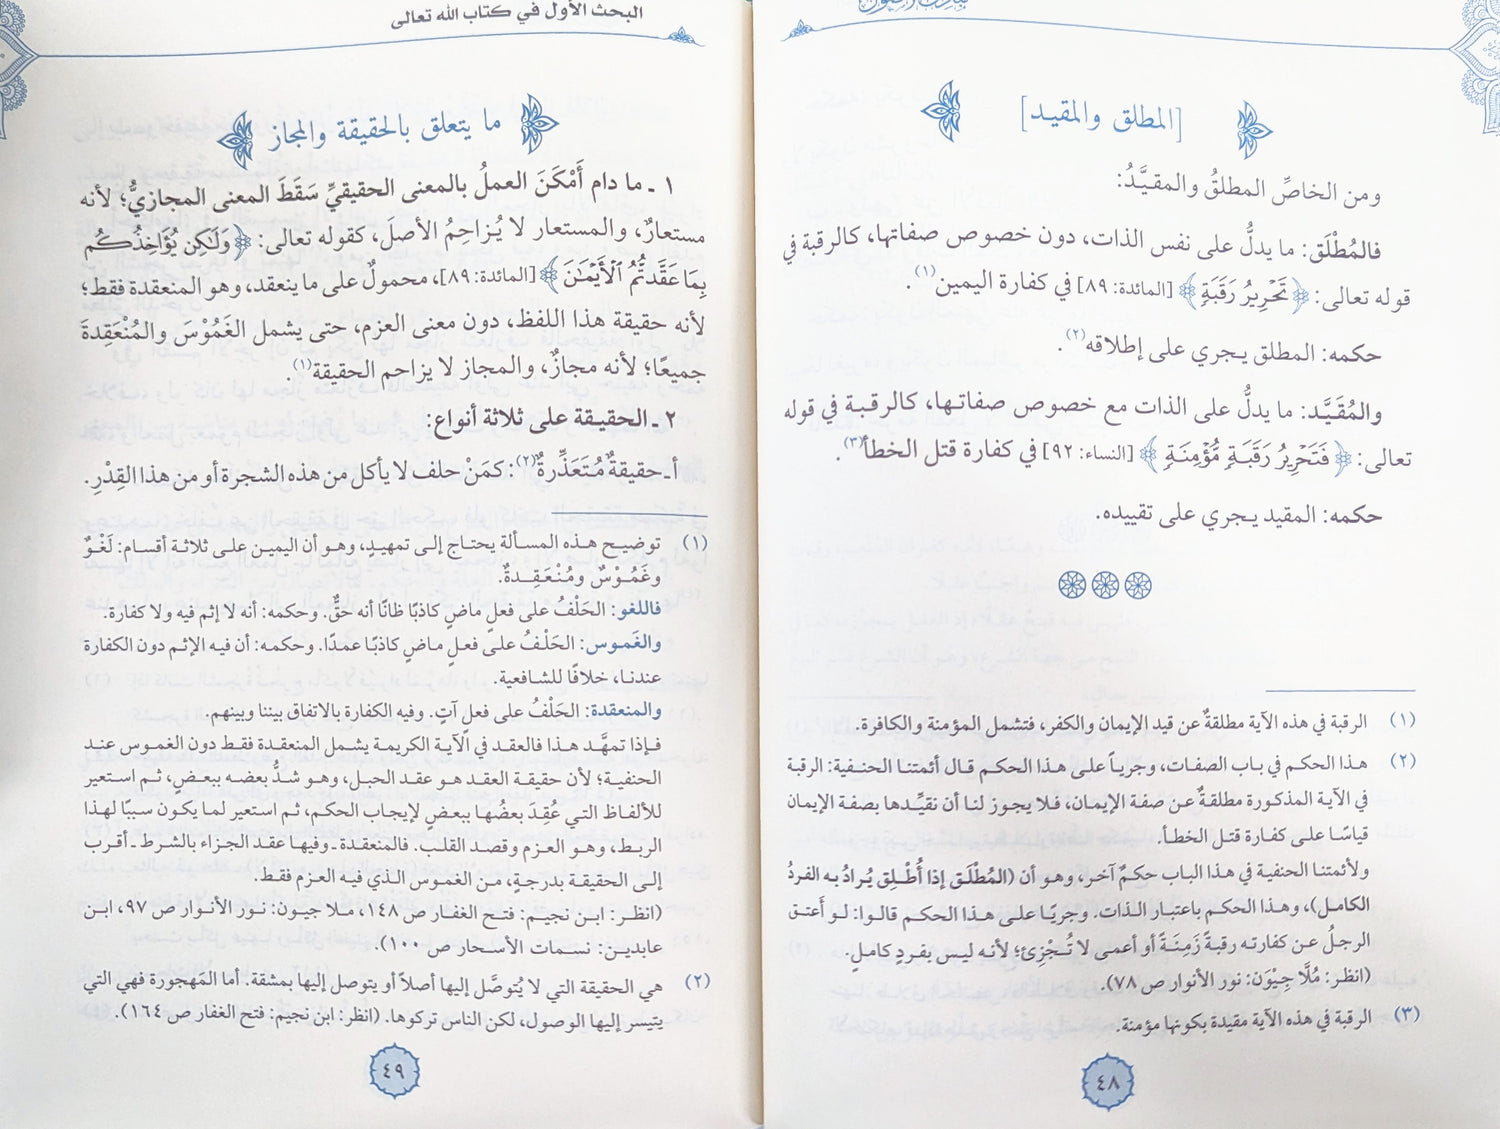 [المطلق والمقيد]
ومن الخاصِّ المطلقُ والمقيَّدُ:
فالمُطْلَق: ما يدلُّ على نفس الذات، دون خصوص صفاتها، كالرقبة في
قوله تعالى: ﴿تَحْرِيرُ رَقَبَةٍ﴾ [المائدة: ٨٩] في كفارة اليمين(١).
حكمه: المطلق يجري على إطلاقه(٢).
والمُقَيَّد: ما يدلُّ على الذات مع خصوص صفاتها، كالرقبة في قوله
تعالى: ﴿فَتَحْرِيرُ رَقَبَةٍ مُّؤْمِنَةٍ﴾ [النساء: ٩٢] في كفارة قتل الخطأ(٣).
حكمه: المقيد يجري على تقييده.
(١) الرقبة في هذه الآية مطلقةٌ عن قيد الإيمان والكفر، فتشمل المؤمنة والكافرة.
(٢) هذا الحكم في باب الصفات، وجرياً على هذا الحكم قال أئمتنا الحنفية: الرقبة
في الآية المذكورة مطلقةٌ عن صفة الإيمان، فلا يجوز لنا أن نقيِّدها بصفة الإيمان
قياسًا على كفارة قتل الخطأ.
ولأئمتنا الحنفية في هذا الباب حكمٌ آخر، وهو أن (المُطْلَق إذا أُطْلِق يُرادُ به الفردُ
الكامل)، وهذا الحكم باعتبار الذات. وجريًا على هذا الحكم قالوا: لو أَعتق
الرجلُ عن كفارته رقبةً زَمِنَةً أو أعمى لا تُجْزِئ؛ لأنه ليس بفردٍ كاملٍ.
(انظر: مُلَّا جِيْوَن: نور الأنوار ص ٧٨).
(٣) الرقبة في هذه الآية مقيدة بكونها مؤمنة.
٤٨
البحث الأول في كتاب الله تعالى
ما يتعلق بالحقيقة والمجاز
١ ـ ما دام أَمْكَنَ العملُ بالمعنى الحقيقيِّ سَقَطَ المعنى المجازيُّ؛ لأنه
مستعارٌ، والمستعار لا يُزاحِمُ الأصلَ، كقوله تعالى: ﴿وَلَٰكِن يُؤَاخِذُكُم
بِمَا عَقَّدتُّمُ ٱلْأَيْمَٰنَ﴾ [المائدة: ٨٩]، محمولٌ على ما ينعقد، وهو المنعقدة فقط؛
لأنه حقيقة هذا اللفظ، دون معنى العزم، حتى يشمل الغَمُوْسَ والمُنْعَقِدةَ
جميعًا؛ لأنه مجازٌ، والمجاز لا يزاحم الحقيقة(١).
٢ ـ الحقيقة على ثلاثة أنواع:
أ ـ حقيقةٌ مُتَعَذِّرةٌ(٢): كمَنْ حلف لا يأكل من هذه الشجرة أو من هذا القِدْرِ.
(١) توضيح هذه المسألة يحتاج إلى تمهيدٍ، وهو أن اليمين على ثلاثة أقسام: لَغْوٌ
وغَمُوْسٌ ومُنْعَقِدةٌ.
فاللغو: الحَلْفُ على فعلٍ ماضٍ كاذبًا ظانًا أنه حقٌّ. وحكمه: أنه لا إثم فيه ولا كفارة.
والغَموس: الحَلْفُ على فعلٍ ماضٍ كاذبًا عمدًا. وحكمه: أن فيه الإثم دون الكفارة
عندنا، خلافًا للشافعية.
والمنعقدة: الحَلْفُ على فعلٍ آتٍ. وفيه الكفارة بالاتفاق بيننا وبينهم.
فإذا تمهَّد هذا فالعقد في الآية الكريمة يشمل المنعقدة فقط دون الغموس عند
الحنفية؛ لأن حقيقة العقد هو عقد الحبل، وهو شدُّ بعضه ببعضٍ، ثم استعير
للألفاظ التي عُقِدَ بعضُها ببعضٍ لإيجاب الحكم، ثم استعير لما يكون سببًا لهذا
الربط، وهو العزم وقصد القلب. فالمنعقدة ـ وفيها عقد الجزاء بالشرط ـ أقرب
إلى الحقيقة بدرجةٍ، من الغموس الذي فيه العزم فقط.
(انظر: ابن نجيم: فتح الغفار ص ١٤٨، ملا جيون: نور الأنوار ص ٩٧، ابن
عابدين: نسمات الأسحار ص ١٠٠).
(٢) هي الحقيقة التي لا يُتوصَّل إليها أصلاً أو يتوصل إليها بمشقة. أما المَهجورة فهي التي
يتيسر إليها الوصول، لكن الناس تركوها. (انظر: ابن نجيم: فتح الغفار ص ١٦٤).
٤٩